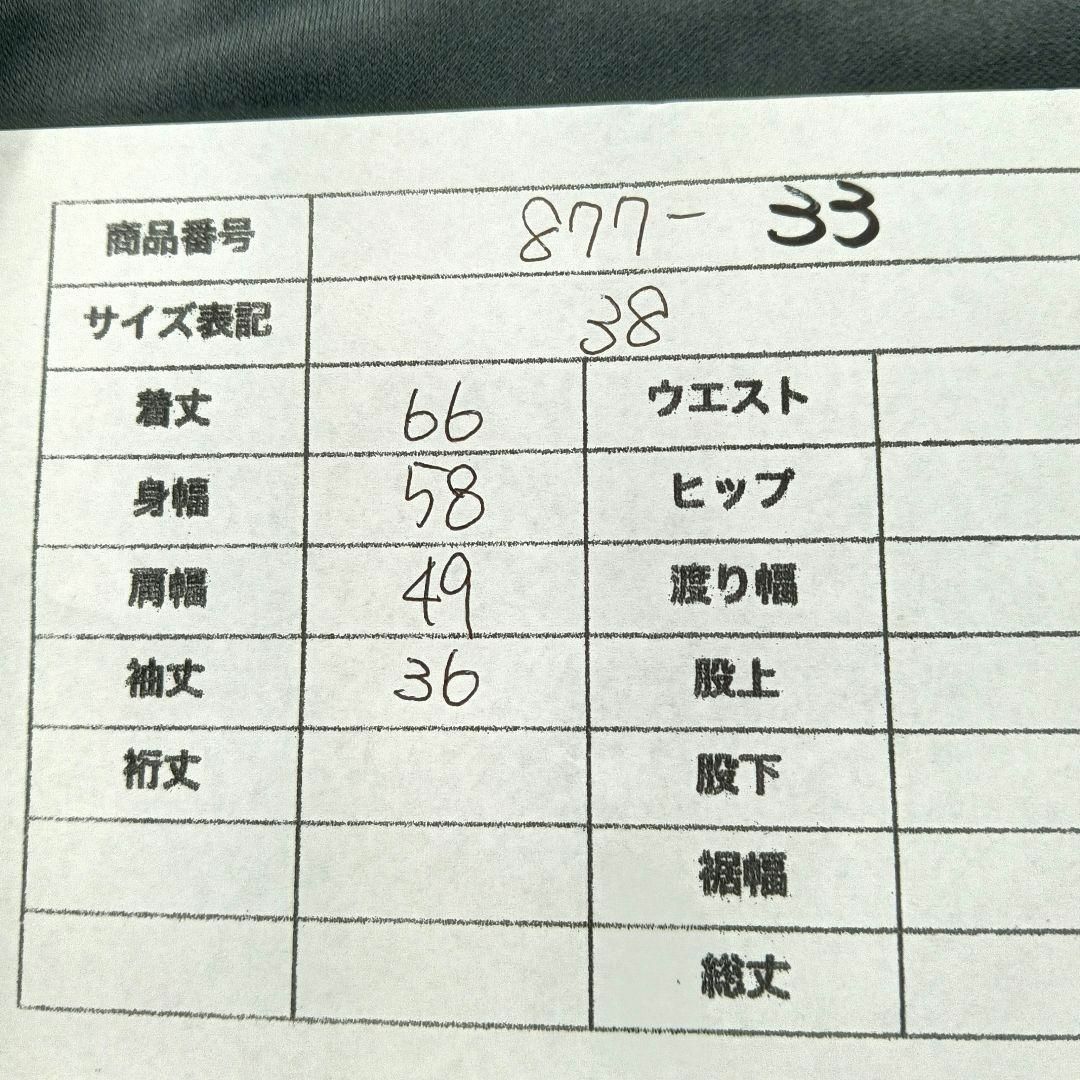 商品番号 877- 33
サイズ表記 38
着丈 66 ウエスト
身幅 58 ヒップ
肩幅 49 渡り幅
袖丈 36 股上
裄丈 股下
裾幅
総丈